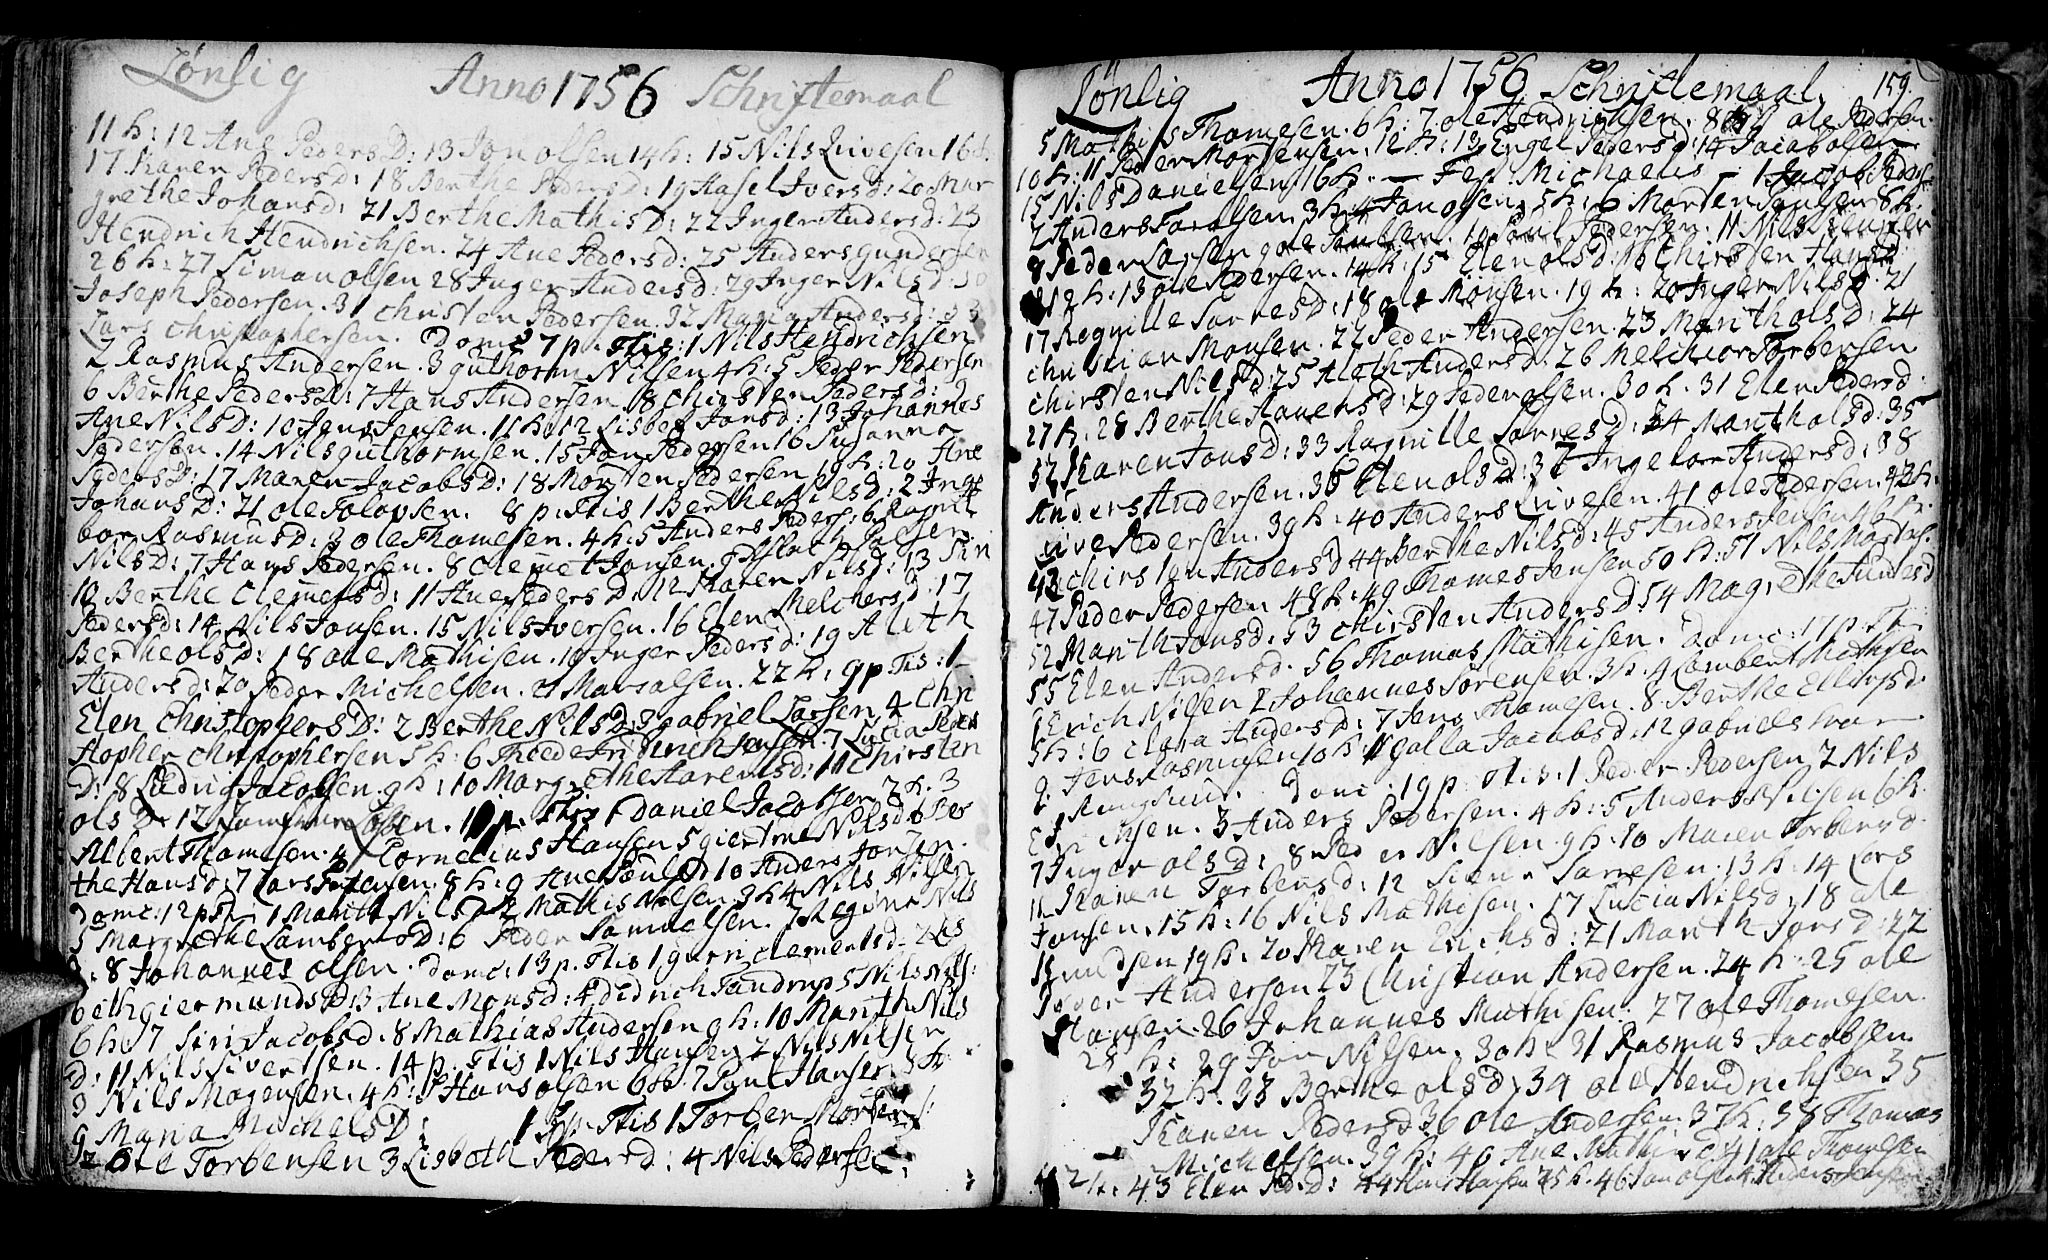 Lönlig Anno 1756 Schriftemaal
11 h: 12 Ane PedersD: 13 Jon olsen 14 h: 15 Nils Livesen 16 h.
17 Karen PedersD: 18 Berthe Pedersd: 19 Hasel Iversd: 20 Mar
grethe Johansd: 21 Berthe MathisD: 22 Inger Andersd: 23
Hendrich Hendrichsen. 24 Ane Pedersd: 25 Anders gundersen
26 h: 27 Siman olsen 28 Inger Andersd: 29 Inger Nilsd: 30
Joseph Pedersen. 31 christen Pedersen. 32 Maria Andersd: 33
Lars christophersen. Domc 7 p. Ttis: 1 Nils Hendrichsen
2 Rasmus Andersen. 3 guthorm Nilsen 4 h: 5 Peder Pedersen
6 Berthe Pedersd: 7 Hans Andersen. 8 chirsten Pedersd: 9
Ane NilsD: 10 Jens Jensen. 11 h: 12 Lisbet Jonsd: 13 Johannes
Pedersen. 14 Nils guthormsen. 15 Jon Pedersen 16 Susanna
PedersD: 17 Maren JacobsD: 18 Morten Pedersen 19 h: 20 Ane
JohansD: 21 ole Tolovsen. 8 p. Ttis 1 Berthe Nilsd: 2 Inge
bor RasmusD: 3 ole Thomesen. 4 h: 5 Anders Peders: 6 Ragnil
NilsD: 7 Hans Pedersen. 8 Clemet Jonsen. 9
10 Berthe Clemetsd: 11 Ane PedersD: 12 Karen Nilsd: 13 Siri
Pedersd: 14 Nils Jonsen. 15 Nils Iversen. 16 Elen Melchersd: 17
Berthe olsD: 18 ole Mathisen. 19 Inger Pedersd: 19 Aleth
Andersd: 20 Peder Michelsen. 21 Mars olsen. 22 h: 9 p Ttis: 1
Elen ChristophersD: 2 Berthe NilsD: 3 gabriel Larsen 4 Chri
stopher christophersen 5 h: 6 Jensen. 7 Lucia Peders
D: 8 Jacobsen. 9 h: 10 Margrethe 11 Chirsten
ols D: 12 Olsen. 10 p. Ttis 1 Daniel Jacobsen 2 h. 3
Albert Thomesen. 4 Cornelius Hansen 5 giertrue Nilsd 6 Ber
the Hansd: 7 Lars 8 h: 9 Ane 10 Anders Jonsen.
Domc: 12 p Ttis 1 Marith NilsD 2 Mathis Nilsen 3 h 4 Nils Nilsen
5 Margrethe LambertsD: 6 Peder Samuelsen. 7 Regine Nils
D: 8 Johannes olsen. Domc: 13 p. Ttis 1 gurri clementsd. 2 Lis
beth giermundsD: 3 Ane Monsd: 4 Didrich Tandrup 5 Nils Nils:
6 h 7 Siri Jacobsd. 8 Mathias Andersen 9 h: 10 Marith Nils
d: 11 Nils Sivertsen. 14 p. Ttis 1 Nils Hansen 2 Nils Nilsen
3 Nils Mogensen. 4 h: 5 Hans olsen 6 h. 7 Paul Hansen 8 h
9 Maria MichelsD: Ttis 1 Torben
2 ole Torbensen 3 Lisbeth Pedersd: 4 Nils Pedersen
Lönlig Anno 1756 Schriftemaal. 159.
5 Mathis Thomesen. 6 h: 7 ole Hendrichsen. 8 h 9 ole Peders:
10 h: 11 Peder Mortensen. 12 h: 13 Engel Pedersd: 14 Jacob olsen
15 Nils Danielsen 16 h. — Fest: Michaelis: 1 Jacob Peders:
2 Anders 3 h: 4 Jon olsen. 5 h: 6 Morten Jonsen 8 h.
8 Peder Larsen 9 ole 10 Poul Pedersen. 11 Nils
12 h: 13 ole Pedersen. 14 h: 15 Elen olsd: 16 Chirsten Hansd:
17 Ragnille SorresD: 18 ole Monsen. 19 h: 20 Inger Nilsd: 21
christian Monsen. 22 Peder Andersen. 23 Marith olsD: 24
Chirsten NilsD: 25 Aleth Andersd: 26 Melchior Torbersen
27 h: 28 Berthe 29 Peder olsen. 30 h. 31 Elen Pedersd:
32 Karen JonsD: 33 Ragnille SorresD: 34 Marith olsd: 35
Anders Andersen. 36 Elen olsD: 37 Ingebor Andersd: 38
Live Pedersen. 39 h: 40 Anders Livesen. 41 ole Pedersen. 42 h.
43 chirsten Andersd 44 Berthe Nilsd: 45 Anders Jensen 46 h.
47 Peder Pedersen 48 h: 49 Thomes Jensen 50 h: 51 Nils Mortens:
52 Marith Jonsd: 53 chirsten Anders D: 54 Magrethe Andersd
55 Elen Andersd. 56 Thomas Mathisen. Domc: 17 p. Tr.
1 Erich Nilsen 2 Johannes Sörensen. 3 h. 4 Lambert Mathisen
5 h: 6 clara Andersd: 7 Jens Thomesen. 8 Berthe Ellingsd:
9 Jens Rasmusen 10 h: 11 golla Jacobsd: 12 gabriel
Domc: 19 p Ttis: 1 Peder Pedersen 2 Nils
Erichsen. 3 Anders Pedersen. 4 h: 5 Anders Nilsen 6 h.
7 Inger olsD: 8 Peder Nilsen. 9 h: 10 Maren Torbersd.
11 Karen Torbersd: 12 Siens Sorresen. 13 h: 14 Lars
Jonsen. 15 h: 16 Nils Mathisen. 17 Lucia Nilsd: 18 ole
Knudsen 19 h: 20 Karen Erichsd: 21 Marith Jonsd: 22
Iver Andersen 23 Christian Andersen. 24 h: 25 ole
Hansen. 26 Johannes Mathisen. 27 ole Thomesen.
28 h: 29 Jon Nilsen. 30 h: 31 Rasmus Jacobsen
32 h. 33 Berthe olsd: 34 ole Hendrichsen 35
Karen Pedersd. 36 ole Andersen. 37 h: 38 Thomas
Michelsen. 39 h: 40 Ane MathisD: 41 ole Thomesen
42 h: 43 Elen Ped:D: 44 Hans Hansen 45 h: 46 Jon olsen 47 Anders